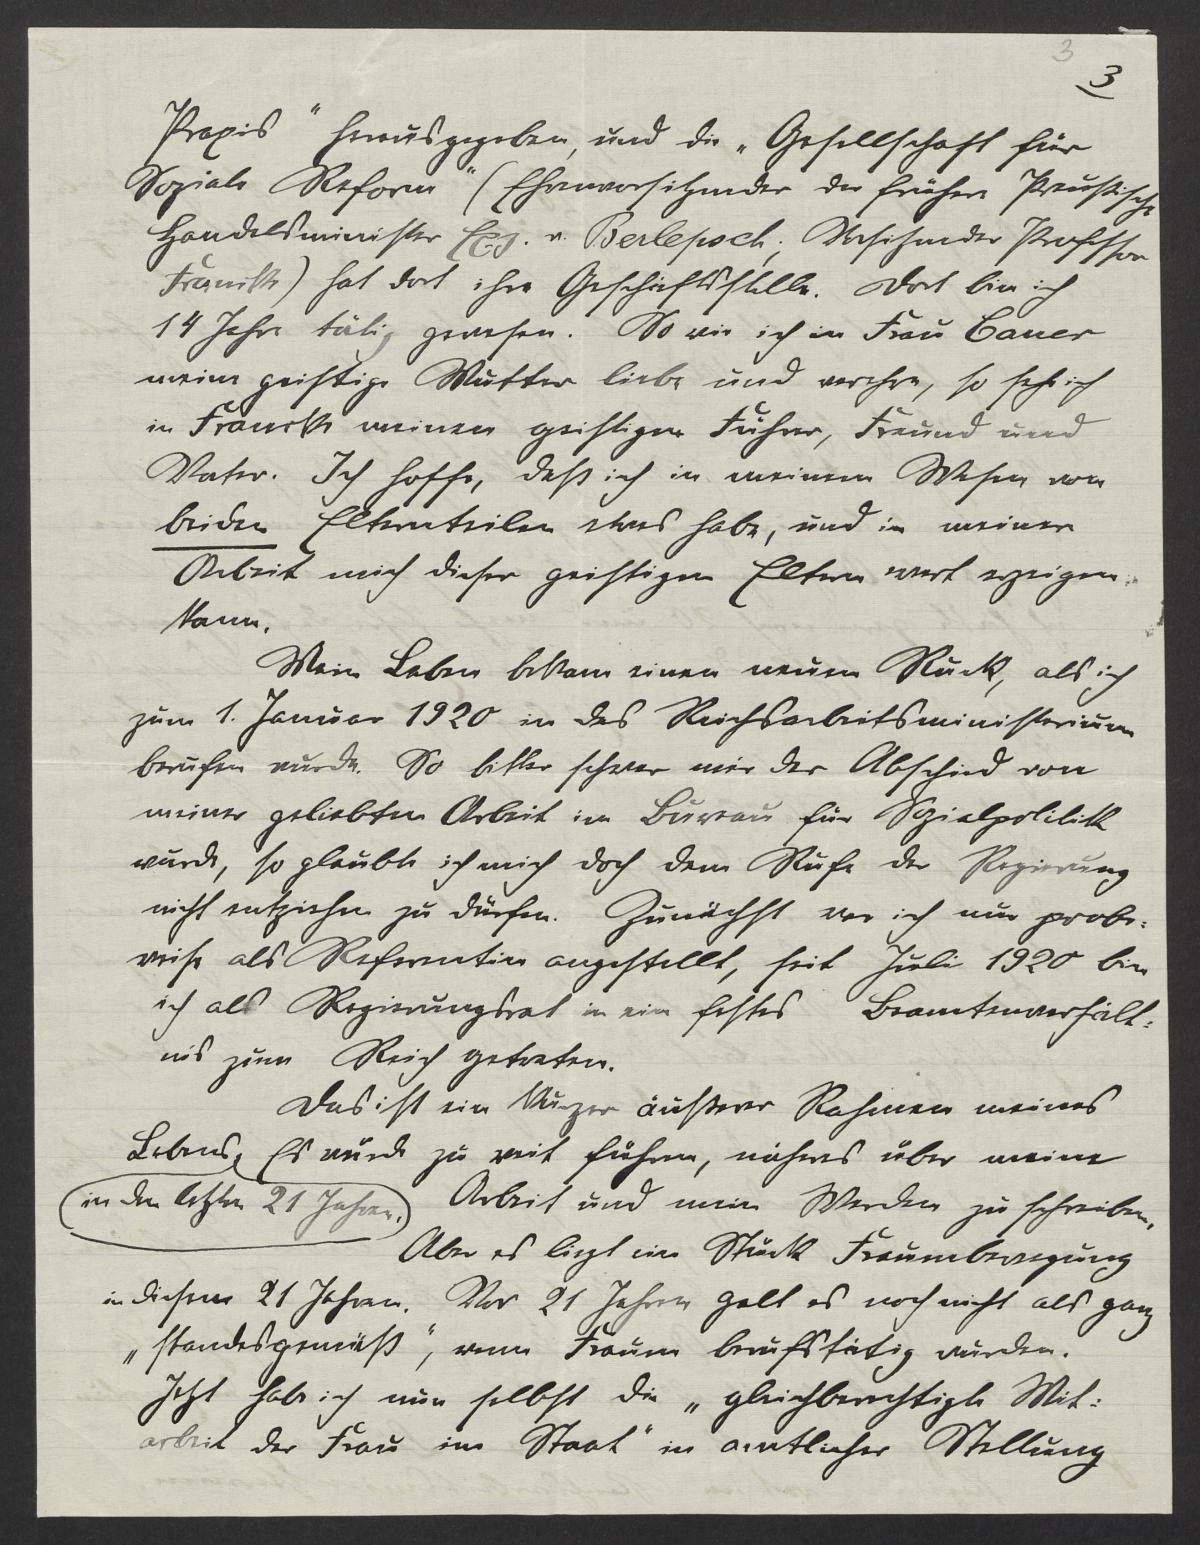 3
3
Praxis" herausgegeben, und die „Gesellschaft für
Soziale Reform" (Ehrenvorsitzender der frühere Preußische
Handelsminister Exz. v. Berlepsch, Vorsitzender Professor
Francke) hat dort ihre Geschäftsstelle. Dort bin ich
14 Jahre tätig gewesen. So wie ich in Frau Cauer
meine geistige Mutter liebe und verehre, so sehe ich
in Francke meinen geistigen Führer, Freund und
Vater. Ich hoffe, daß ich in meinem Wesen von
beiden Elternteilen etwas habe, und in meiner
Arbeit mich dieser geistigen Eltern wert erzeigen
kann.
Mein Leben bekam einen neuen Ruck, als ich
zum 1. Januar 1920 in das Reichsarbeitsministerium
berufen wurde. So bitter schwer mir der Abschied von
meiner geliebten Arbeit im Bureau für Sozialpolitik
wurde, so glaubte ich mich doch dem Rufe der Regierung
nicht entziehen zu dürfen. Zunächst war ich nur probe=
weise als Referentin angestellt, seit Juli 1920 bin
ich als Regierungsrat in ein festes Beamtenverhält=
nis zum Reich getreten.
Das ist ein kurzer äußerer Rahmen meines
Lebens. Es würde zu weit führen, näheres über meine
in den letzten 21 Jahren. Arbeit und mein Werden zu schreiben.
Aber es liegt ein Stück Frauenbewegung
in diesen 21 Jahren. Vor 21 Jahren galt es noch nicht als ganz
„standesgemäß", wenn Frauen berufstätig wurden.
Jetzt habe ich nun selbst die „gleichberechtigte Mit=
arbeit der Frau im Staat" in amtlicher Stellung